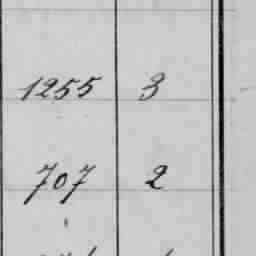 1255 3
707 2